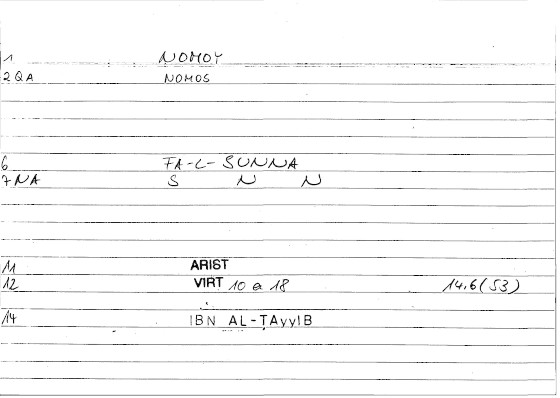 1 NOMOY
2 QA NOMOS
6 FA-L-SUNNA
7 NA S N N
11 ARIST
12 VIRT 10 a 18 14.6(53)
14 IBN AL-ṬAyyIB